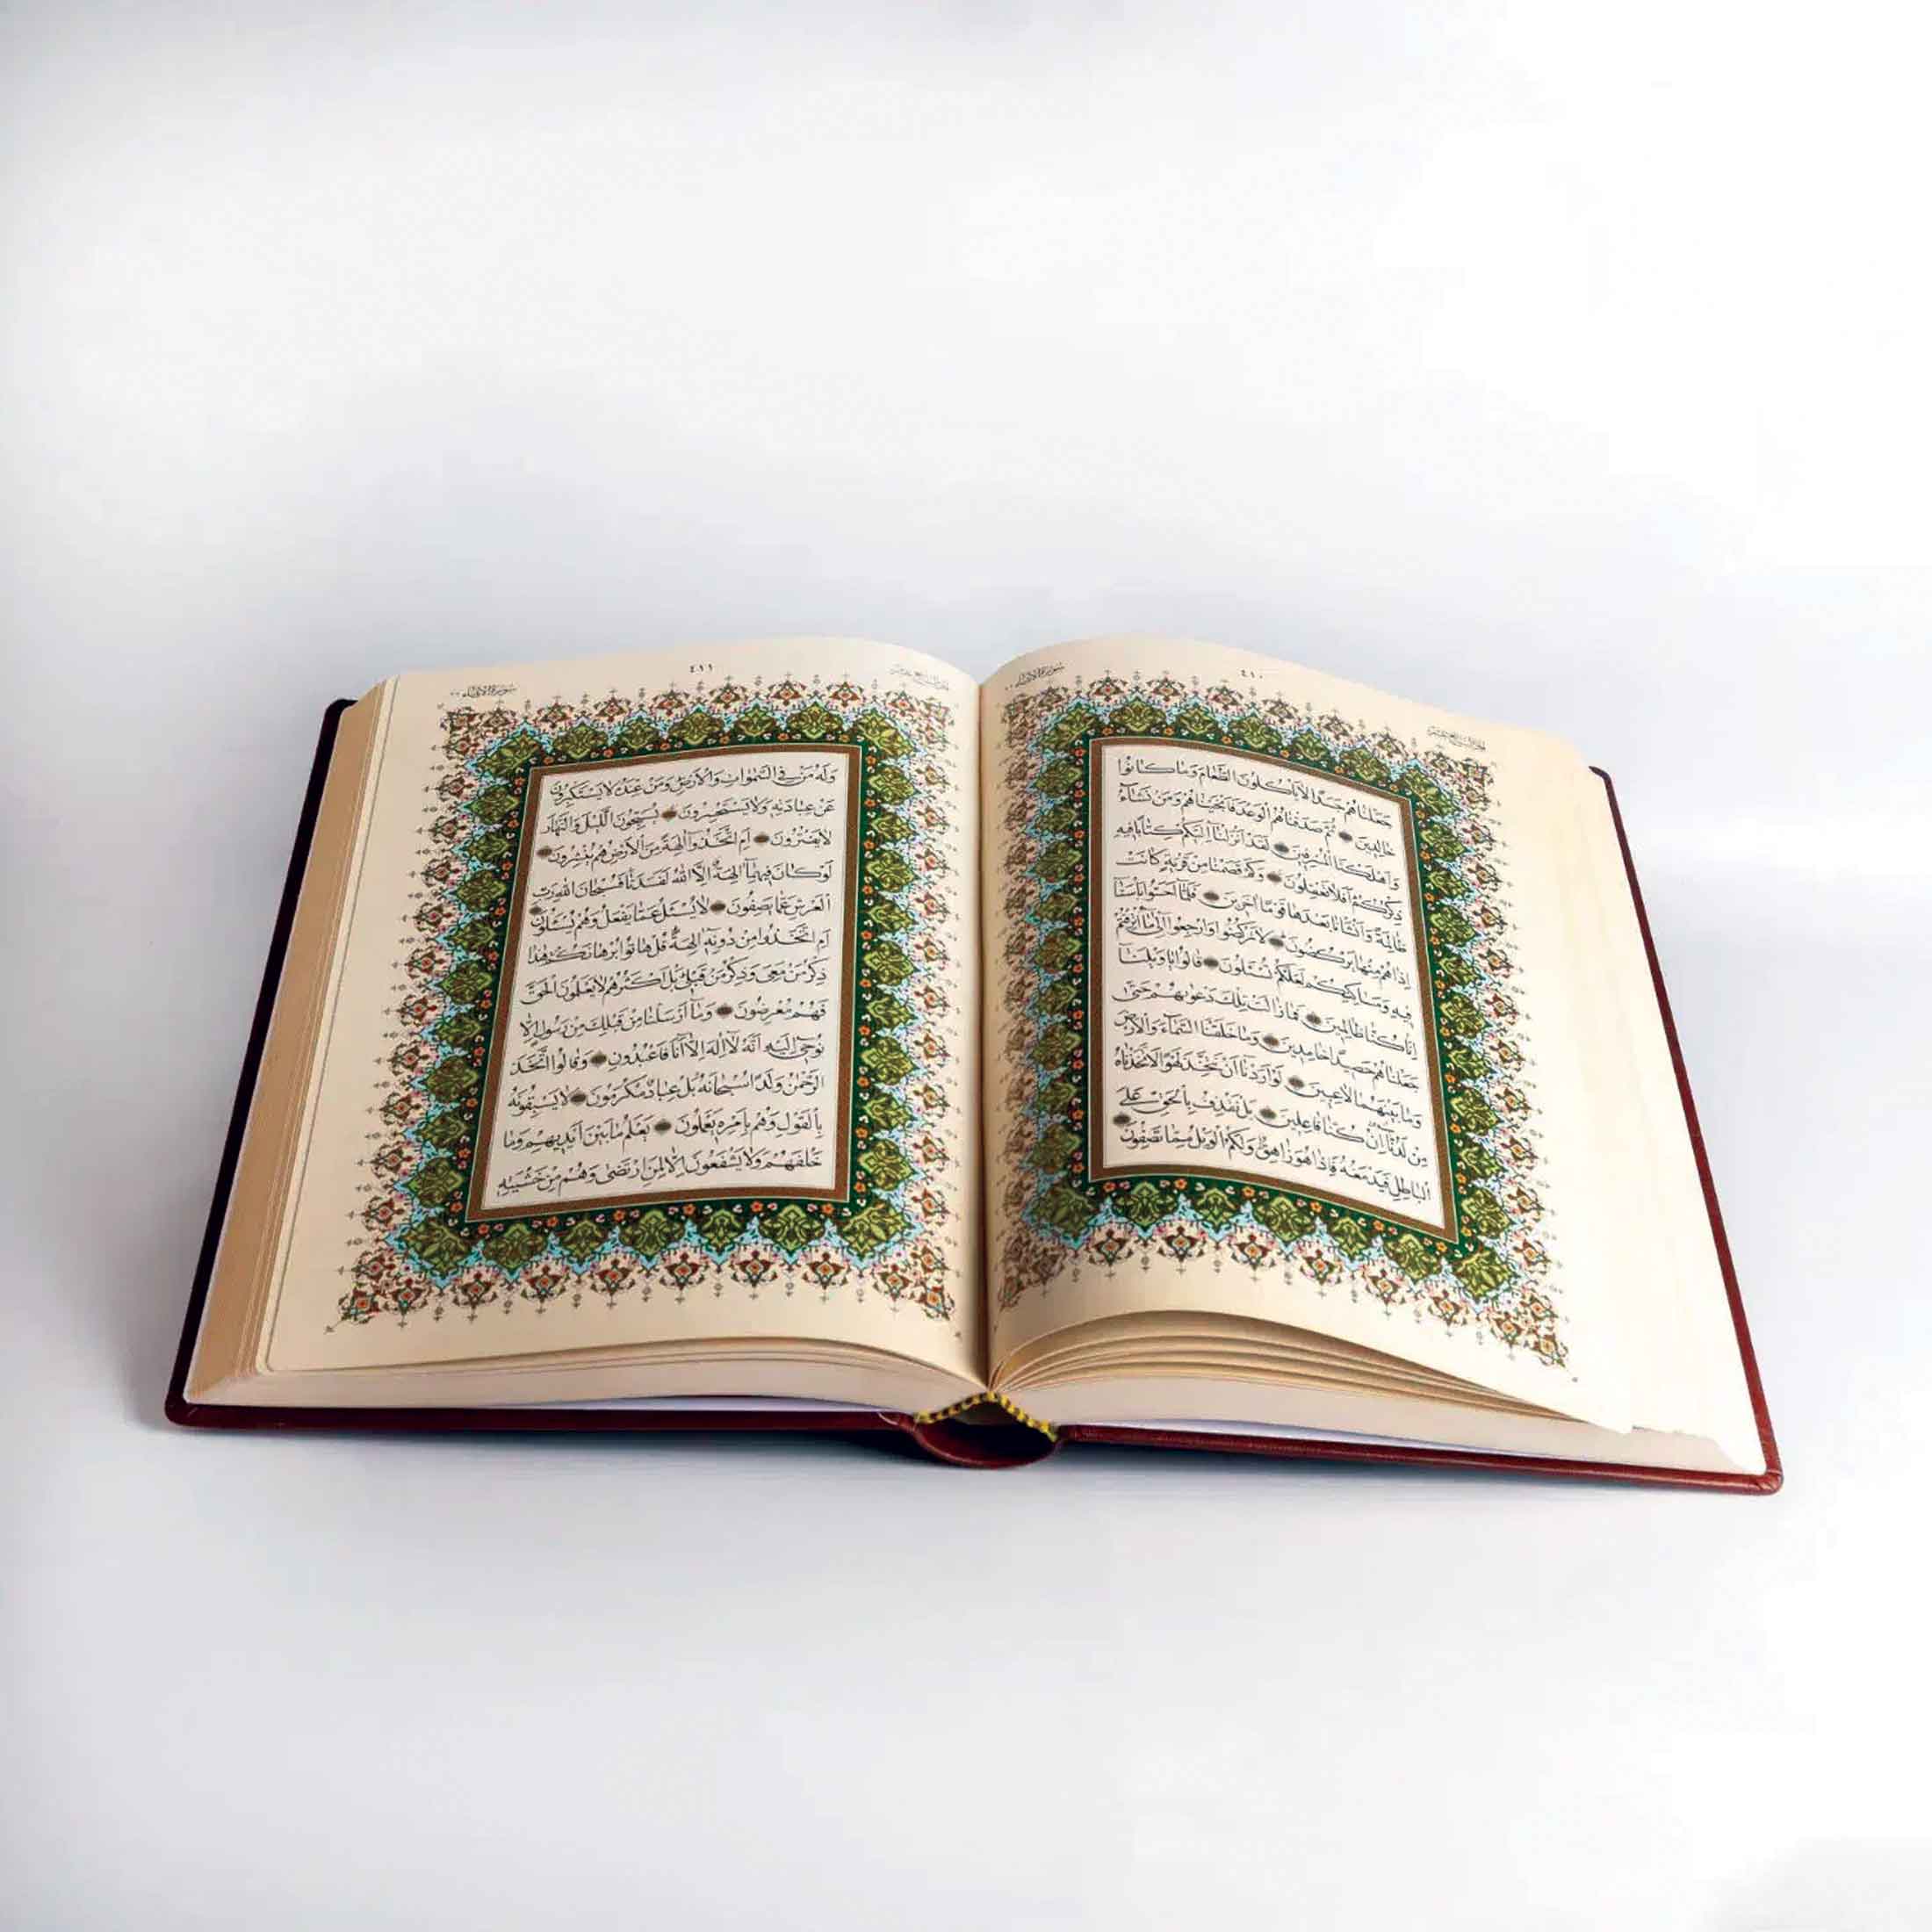 ٤١٠
جَعَلْنَاهُمْ جَسَدًا لَا يَأْكُلُونَ الطَّعَامَ وَمَا كَانُوا
خَالِدِينَ ثُمَّ صَدَقْنَاهُمُ الْوَعْدَ فَأَنْجَيْنَاهُمْ وَمَنْ نَشَاءُ
وَأَهْلَكْنَا الْمُسْرِفِينَ لَقَدْ أَنْزَلْنَا إِلَيْكُمْ كِتَابًا فِيهِ
ذِكْرُكُمْ أَفَلَا تَعْقِلُونَ وَكَمْ قَصَمْنَا مِنْ قَرْيَةٍ كَانَتْ
ظَالِمَةً وَأَنْشَأْنَا بَعْدَهَا قَوْمًا آخَرِينَ فَلَمَّا أَحَسُّوا بَأْسَنَا
إِذَا هُمْ مِنْهَا يَرْكُضُونَ لَا تَرْكُضُوا وَارْجِعُوا إِلَى مَا أُتْرِفْتُمْ
فِيهِ وَمَسَاكِنِكُمْ لَعَلَّكُمْ تُسْأَلُونَ قَالُوا يَا وَيْلَنَا
إِنَّا كُنَّا ظَالِمِينَ فَمَا زَالَتْ تِلْكَ دَعْوَاهُمْ حَتَّى
جَعَلْنَاهُمْ حَصِيدًا خَامِدِينَ وَمَا خَلَقْنَا السَّمَاءَ وَالْأَرْضَ
وَمَا بَيْنَهُمَا لَاعِبِينَ لَوْ أَرَدْنَا أَنْ نَتَّخِذَ لَهْوًا لَاتَّخَذْنَاهُ
مِنْ لَدُنَّا إِنْ كُنَّا فَاعِلِينَ بَلْ نَقْذِفُ بِالْحَقِّ عَلَى
الْبَاطِلِ فَيَدْمَغُهُ فَإِذَا هُوَ زَاهِقٌ وَلَكُمُ الْوَيْلُ مِمَّا تَصِفُونَ
سورة الأنبياء
٤١١
وَلَهُ مَنْ فِي السَّمٰوَاتِ وَالْأَرْضِ وَمَنْ عِنْدَهُ لَا يَسْتَكْبِرُونَ
عَنْ عِبَادَتِهِ وَلَا يَسْتَحْسِرُونَ يُسَبِّحُونَ اللَّيْلَ وَالنَّهَارَ
لَا يَفْتُرُونَ أَمِ اتَّخَذُوا آلِهَةً مِنَ الْأَرْضِ هُمْ يُنْشِرُونَ
لَوْ كَانَ فِيهِمَا آلِهَةٌ إِلَّا اللّٰهُ لَفَسَدَتَا فَسُبْحَانَ اللّٰهِ رَبِّ
الْعَرْشِ عَمَّا يَصِفُونَ لَا يُسْئَلُ عَمَّا يَفْعَلُ وَهُمْ يُسْئَلُونَ
أَمِ اتَّخَذُوا مِنْ دُونِهِ آلِهَةً قُلْ هَاتُوا بُرْهَانَكُمْ هٰذَا
ذِكْرُ مَنْ مَعِيَ وَذِكْرُ مَنْ قَبْلِي بَلْ أَكْثَرُهُمْ لَا يَعْلَمُونَ الْحَقَّ
فَهُمْ مُعْرِضُونَ وَمَا أَرْسَلْنَا مِنْ قَبْلِكَ مِنْ رَسُولٍ إِلَّا
نُوحِي إِلَيْهِ أَنَّهُ لَا إِلٰهَ إِلَّا أَنَا فَاعْبُدُونِ وَقَالُوا اتَّخَذَ
الرَّحْمٰنُ وَلَدًا سُبْحَانَهُ بَلْ عِبَادٌ مُكْرَمُونَ لَا يَسْبِقُونَهُ
بِالْقَوْلِ وَهُمْ بِأَمْرِهِ يَعْمَلُونَ يَعْلَمُ مَا بَيْنَ أَيْدِيهِمْ وَمَا
خَلْفَهُمْ وَلَا يَشْفَعُونَ إِلَّا لِمَنِ ارْتَضَى وَهُمْ مِنْ خَشْيَتِهِ